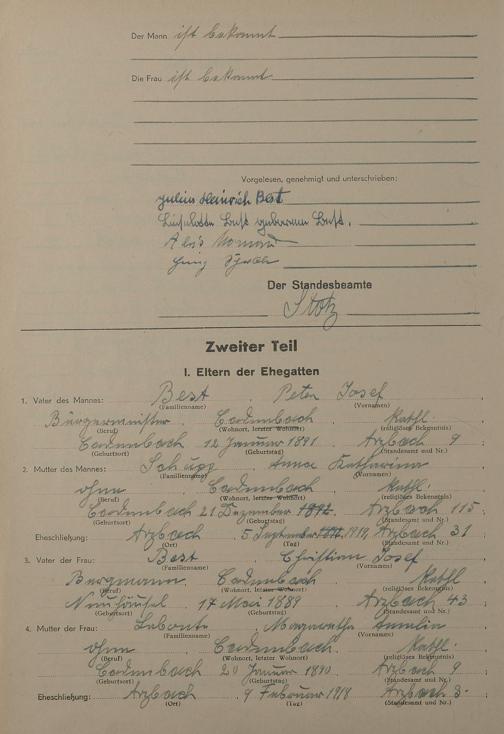 Der Mann ist bekannt
Die Frau ist bekannt
Vorgelesen, genehmigt und unterschrieben:
Julius Heinrich Best
Best geborene Best.
Der Standesbeamte
Stotz
Zweiter Teil
I. Eltern der Ehegatten
1. Vater des Mannes: Best Peter Josef
(Familienname) (Vornamen)
Bürgermeister Cadenbach Kathl.
(Beruf) (Wohnort, letzter Wohnort) (religiöses Bekenntnis)
Cadenbach 12 Januar 1891 Arzbach 9
(Geburtsort) (Geburtstag) (Standesamt und Nr.)
2. Mutter des Mannes: Schupp Anna Katharina
(Familienname) (Vornamen)
ohne Cadenbach Kathl.
(Beruf) (Wohnort, letzter Wohnort) (religiöses Bekenntnis)
Cadenbach 21 Dezember Arzbach 115
(Geburtsort) (Geburtstag) (Standesamt und Nr.)
Eheschließung: Arzbach 5 September 1919 Arzbach 31
(Ort) (Tag) (Standesamt und Nr.)
3. Vater der Frau: Best Christian Josef
(Familienname) (Vornamen)
Bergmann Cadenbach Kathl
(Beruf) (Wohnort, letzter Wohnort) (religiöses Bekenntnis)
Neuhäusel 17 Mai 1889 Arzbach 43
(Geburtsort) (Geburtstag) (Standesamt und Nr.)
4. Mutter der Frau: Labonte Margaretha
(Familienname) (Vornamen)
ohne Cadenbach Kathl.
(Beruf) (Wohnort, letzter Wohnort) (religiöses Bekenntnis)
Cadenbach 20 Januar 1890 Arzbach 9
(Geburtsort) (Geburtstag) (Standesamt und Nr.)
Eheschließung: Arzbach 9 Februar 1918 Arzbach 3.
(Ort) (Tag) (Standesamt und Nr.)